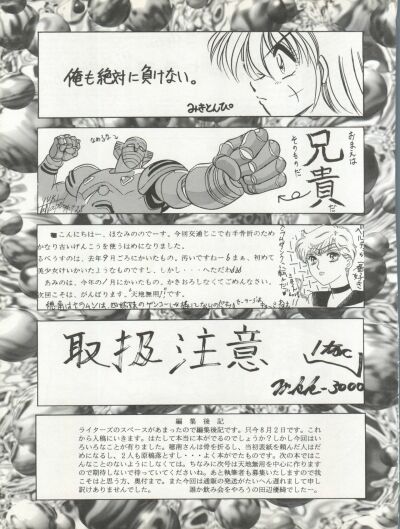 俺も絶対に負けない。
みきとんぴ。
なめるなー
おまえは
兄貴だ
そのものだ
こんにちはー、ほなみののでーす。今回交通じこでも右手骨折のため
かなり古いげんこうを使うはめになりました。
るべうすのは、去年9月ごろにかいたもの。汚いですねー6まぁ、初めて
美少女けいかいたようなものですし、しかし・・・へただね
あみのは、今年の1月にかいたもの。かきおろしなくてごめんなさい。
次回こそは、がんばります。天地無用!!です。
取扱注意
編集後記
ライターズのスペースがあまったので編集後記です。只今8月2日です。これ
から入稿にいきます。はたして本当に本がでるのでしょうか?しかし今回はい
ろいろなことが有りました。穂南さんは骨を折るし、当初表紙を頼んだ人はだ
めになるし、2人も原稿落とすし・・・よく本がでたものです。次の本ではこ
んなことのないようにしなくては。ちなみに次号は天地無用を中心に作ります
ので期待しないで待っていてくださいね。あと執筆者も募集いたしますので我
こそはと思う方、奥付まで。また今回は通販の発送がたいへん遅れまして申し
訳けありませんでした。　誰か飲み会をやろうの田辺優綺でしたー。